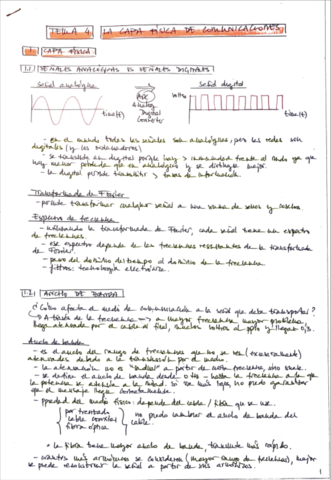 TEMA 4. LA CAPA FÍSICA DE COMUNICACIONES
1. CAPA FÍSICA
1.1. SEÑALES ANALÓGICAS VS SEÑALES DIGITALES
Señal analógica
señal digital
time(s)
ADC
Analog
Digital
Converter
Volts
time(s)
- en el mundo todas las señales son analógicas, pero las redes son
digitales (y los ordenadores)
- se transmite en digital porque hay > inmunidad frente al ruido ya que
hay menor pérdida que en analógico y se distingue mejor.
- la digital permite transmitir > tasas de información.
Transformada de Fourier
- permite transformar cualquier señal a una suma de senos y cosenos
Espectro de frecuencia
- utilizando la transformada de Fourier, cada señal tiene un espectro
de frecuencias.
- ese espectro depende de las frecuencias resultantes de la transformada
de Fourier.
- paso del dominio del tiempo al dominio de la frecuencia
- filtros: tecnología electrónica.
1.2. ANCHO DE BANDA
¿Cómo afecta el medio de comunicación a la señal que debe transportar?
a mayor frecuencia mayor problema
Ancho de banda
- es el ancho del rango de frecuencias que no se ven (excesivamente)
atenuadas debido a la transmisión por el medio.
- la atenuación no es "radical" a partir de cierta frecuencia, sino gradual.
- se define el ancho de banda desde 0 Hz hasta la frecuencia a la que
la potencia se atenúa a la mitad.
- propiedad del medio físico: depende del cable / fibra que se use.
par trenzado
cable coaxial
fibra óptica
no puedo cambiar el ancho de banda del
cable.
- la fibra tiene mayor ancho de banda, transmite más rápido.
- cuantos más armónicos se consideren (mayor rango de frecuencias), mejor
se puede reconstruir la señal a partir de sus armónicos.
1